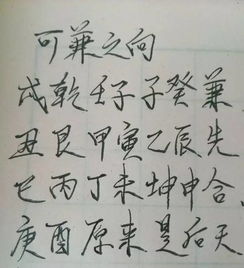 可兼之向
戌乾壬子子癸兼
丑艮甲寅乙辰先
巳丙丁未坤申合、
庚酉原来是后天